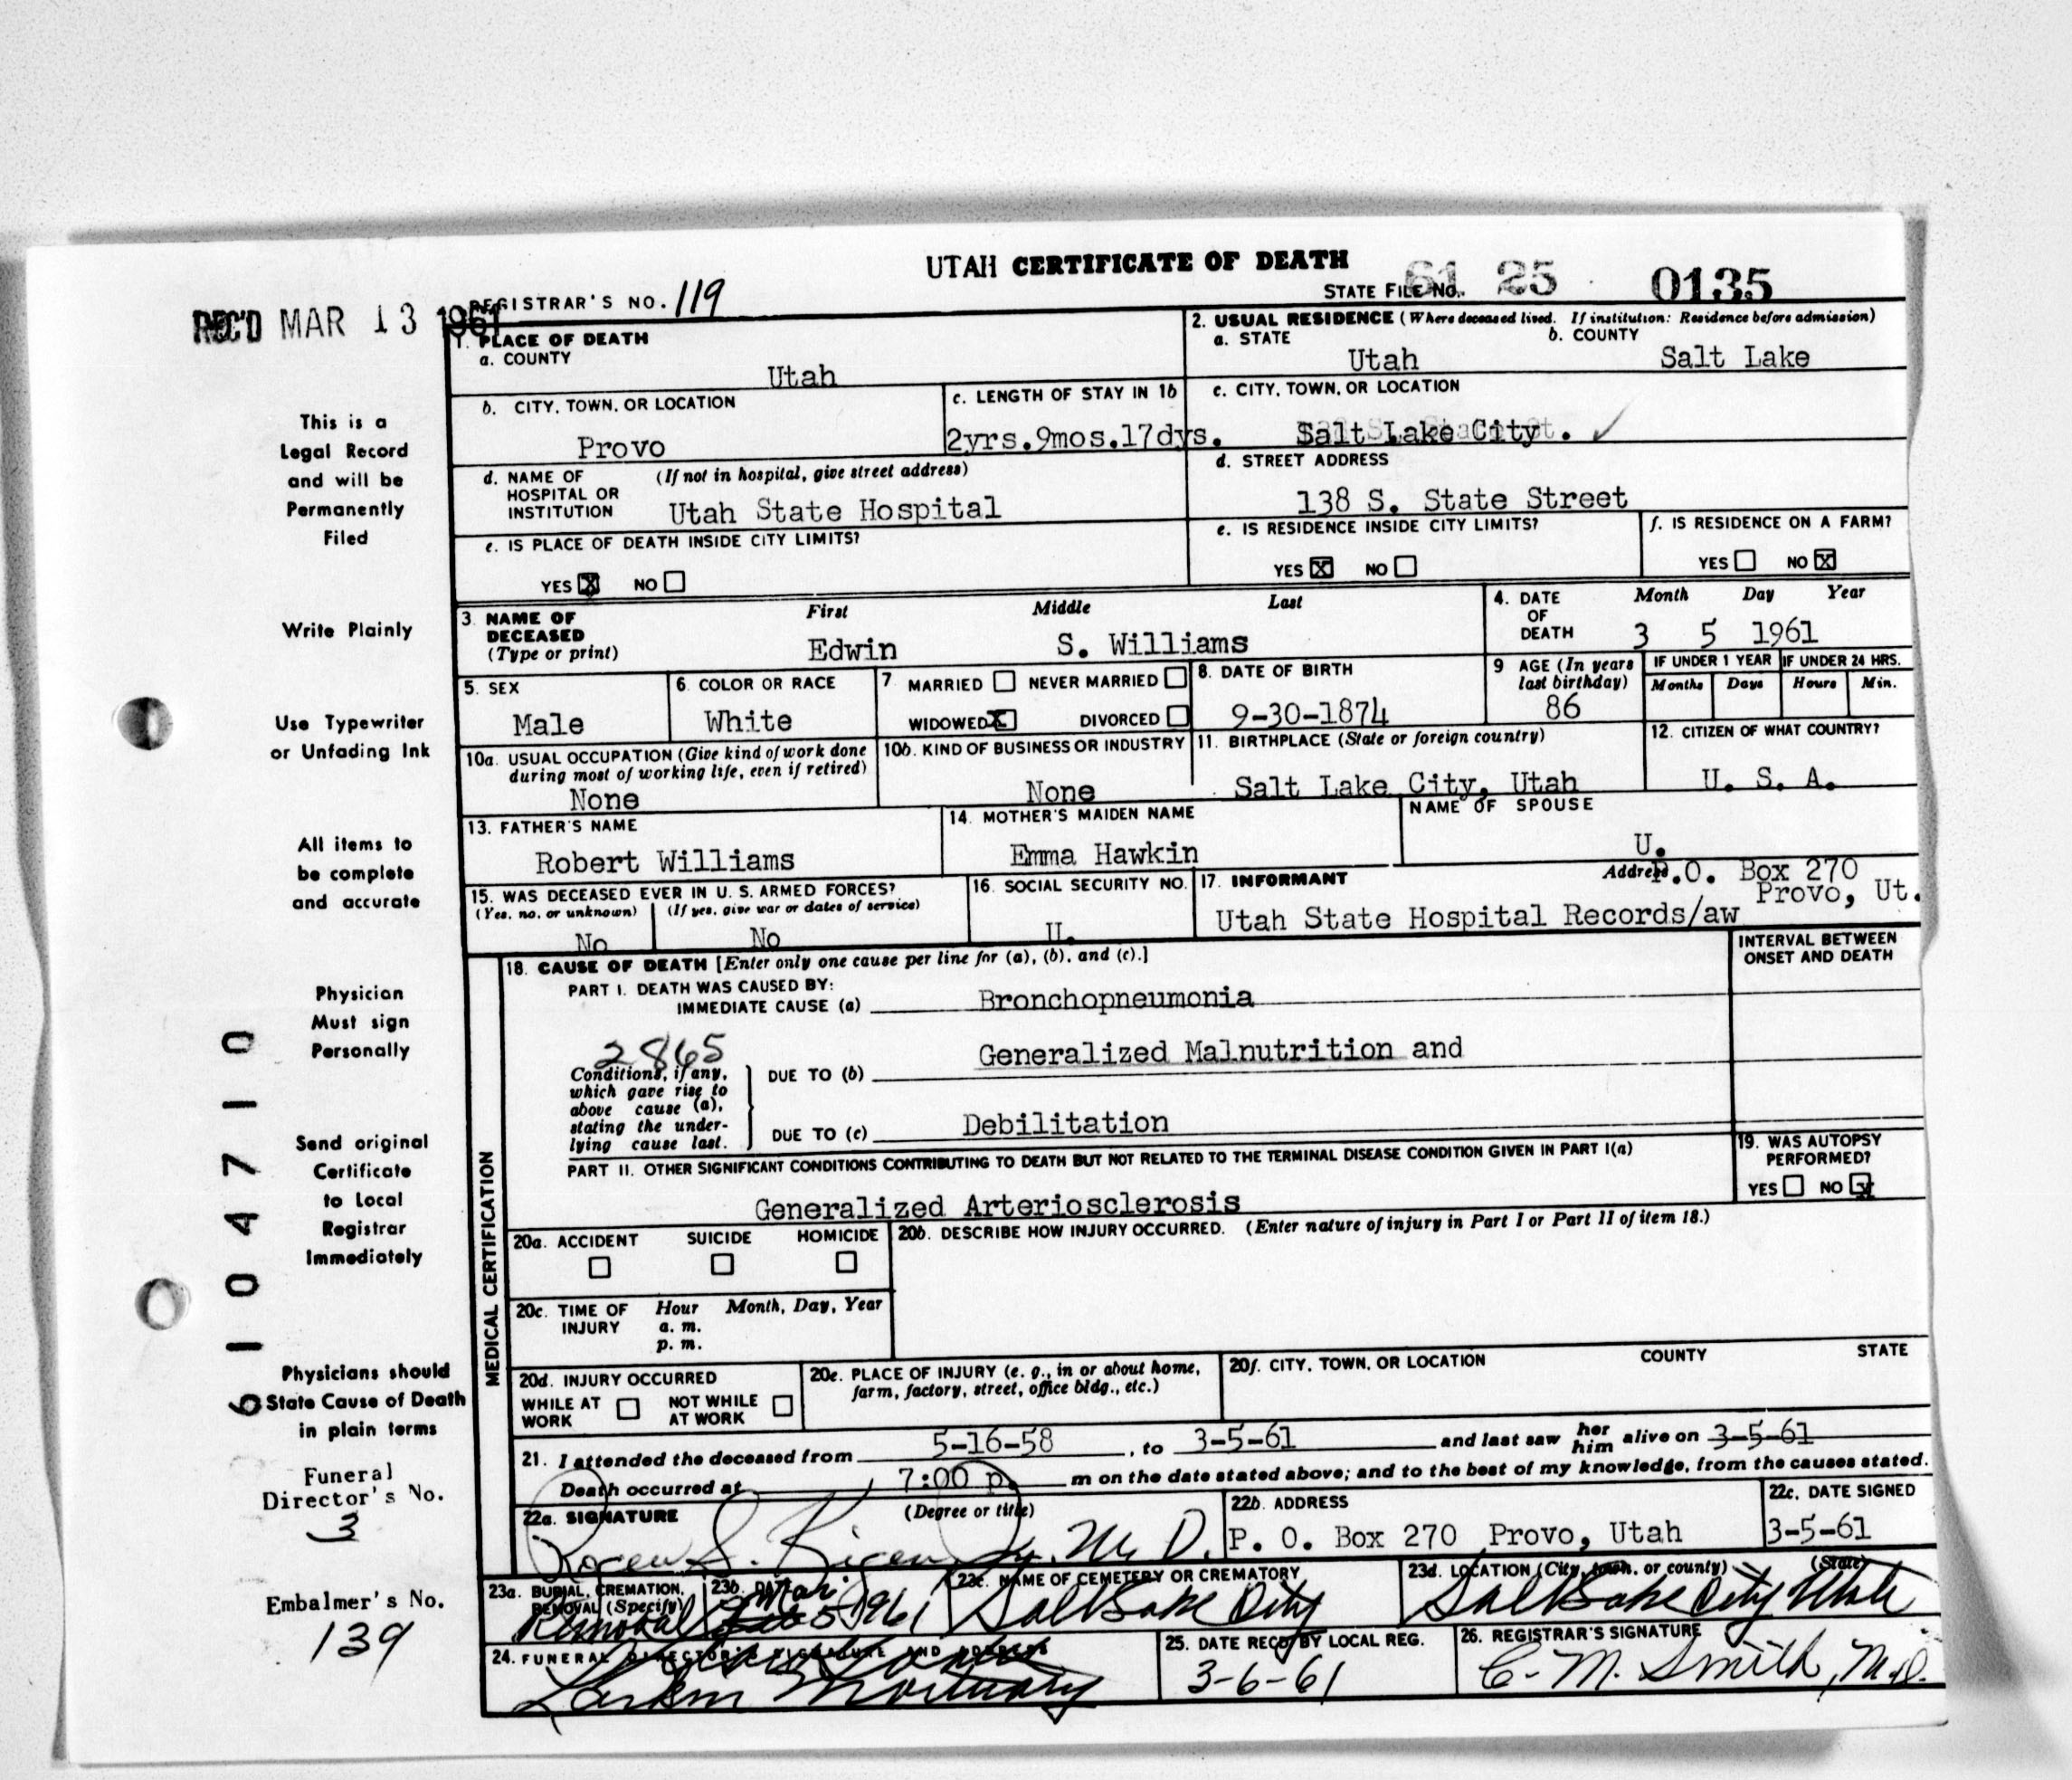 UTAH CERTIFICATE OF DEATH
STATE FILE NO. 61 25 0135
REC'D MAR 13 1961
REGISTRAR'S NO. 119
1. PLACE OF DEATH
a. COUNTY
Utah
2. USUAL RESIDENCE (Where deceased lived. If institution: Residence before admission)
a. STATE b. COUNTY
Utah Salt Lake
b. CITY, TOWN, OR LOCATION
Provo
c. LENGTH OF STAY IN 1b
2yrs.9mos.17dys.
c. CITY, TOWN, OR LOCATION
Salt Lake City. ✓
d. NAME OF (If not in hospital, give street address)
HOSPITAL OR
INSTITUTION Utah State Hospital
d. STREET ADDRESS
138 S. State Street
e. IS PLACE OF DEATH INSIDE CITY LIMITS?
YES X NO
e. IS RESIDENCE INSIDE CITY LIMITS?
YES X NO
f. IS RESIDENCE ON A FARM?
YES NO X
3. NAME OF DECEASED (Type or print)
First Middle Last
Edwin S. Williams
4. DATE OF DEATH
Month Day Year
3 5 1961
5. SEX
Male
6. COLOR OR RACE
White
7 MARRIED NEVER MARRIED
WIDOWED X DIVORCED
8. DATE OF BIRTH
9-30-1874
9 AGE (In years last birthday)
86
IF UNDER 1 YEAR IF UNDER 24 HRS.
Months Days Hours Min.
10a. USUAL OCCUPATION (Give kind of work done
during most of working life, even if retired)
None
10b. KIND OF BUSINESS OR INDUSTRY
None
11. BIRTHPLACE (State or foreign country)
Salt Lake City, Utah
12. CITIZEN OF WHAT COUNTRY?
U. S. A.
13. FATHER'S NAME
Robert Williams
14. MOTHER'S MAIDEN NAME
Emma Hawkin
NAME OF SPOUSE
U.
15. WAS DECEASED EVER IN U. S. ARMED FORCES?
(Yes, no, or unknown) (If yes, give war or dates of service)
No No
16. SOCIAL SECURITY NO.
U.
17. INFORMANT Address P.O. Box 270
Provo, Ut.
Utah State Hospital Records/aw
MEDICAL CERTIFICATION
18. CAUSE OF DEATH [Enter only one cause per line for (a), (b), and (c).]
INTERVAL BETWEEN
ONSET AND DEATH
PART I. DEATH WAS CAUSED BY:
IMMEDIATE CAUSE (a) Bronchopneumonia
2865
Conditions, if any,
which gave rise to
above cause (a),
stating the under-
lying cause last.
Generalized Malnutrition and
DUE TO (b)
DUE TO (c) Debilitation
PART II. OTHER SIGNIFICANT CONDITIONS CONTRIBUTING TO DEATH BUT NOT RELATED TO THE TERMINAL DISEASE CONDITION GIVEN IN PART I(a)
Generalized Arteriosclerosis
19. WAS AUTOPSY
PERFORMED?
YES NO X
20a. ACCIDENT SUICIDE HOMICIDE
20b. DESCRIBE HOW INJURY OCCURRED. (Enter nature of injury in Part I or Part II of item 18.)
20c. TIME OF INJURY Hour Month, Day, Year
a. m.
p. m.
20d. INJURY OCCURRED
WHILE AT WORK NOT WHILE AT WORK
20e. PLACE OF INJURY (e. g., in or about home,
farm, factory, street, office bldg., etc.)
20f. CITY, TOWN, OR LOCATION COUNTY STATE
21. I attended the deceased from 5-16-58, to 3-5-61 and last saw her him alive on 3-5-61
Death occurred at 7:00 p. m on the date stated above; and to the best of my knowledge, from the causes stated.
22a. SIGNATURE (Degree or title)
M. D.
22b. ADDRESS
P. O. Box 270 Provo, Utah
22c. DATE SIGNED
3-5-61
23a. BURIAL, CREMATION,
REMOVAL (Specify)
Removal
23b. DATE
Mar 5 1961
23c. NAME OF CEMETERY OR CREMATORY
Salt Lake City
23d. LOCATION (City, town, or county) (State)
Salt Lake City Utah
24. FUNERAL DIRECTOR'S SIGNATURE AND ADDRESS
Larkin Mortuary
25. DATE RECD BY LOCAL REG.
3-6-61
26. REGISTRAR'S SIGNATURE
C. M. Smith, M.D.
This is a
Legal Record
and will be
Permanently
Filed
Write Plainly
Use Typewriter
or Unfading Ink
All items to
be complete
and accurate
Physician
Must sign
Personally
Send original
Certificate
to Local
Registrar
Immediately
Physicians should
State Cause of Death
in plain terms
Funeral
Director's No.
3
Embalmer's No.
139
6104710